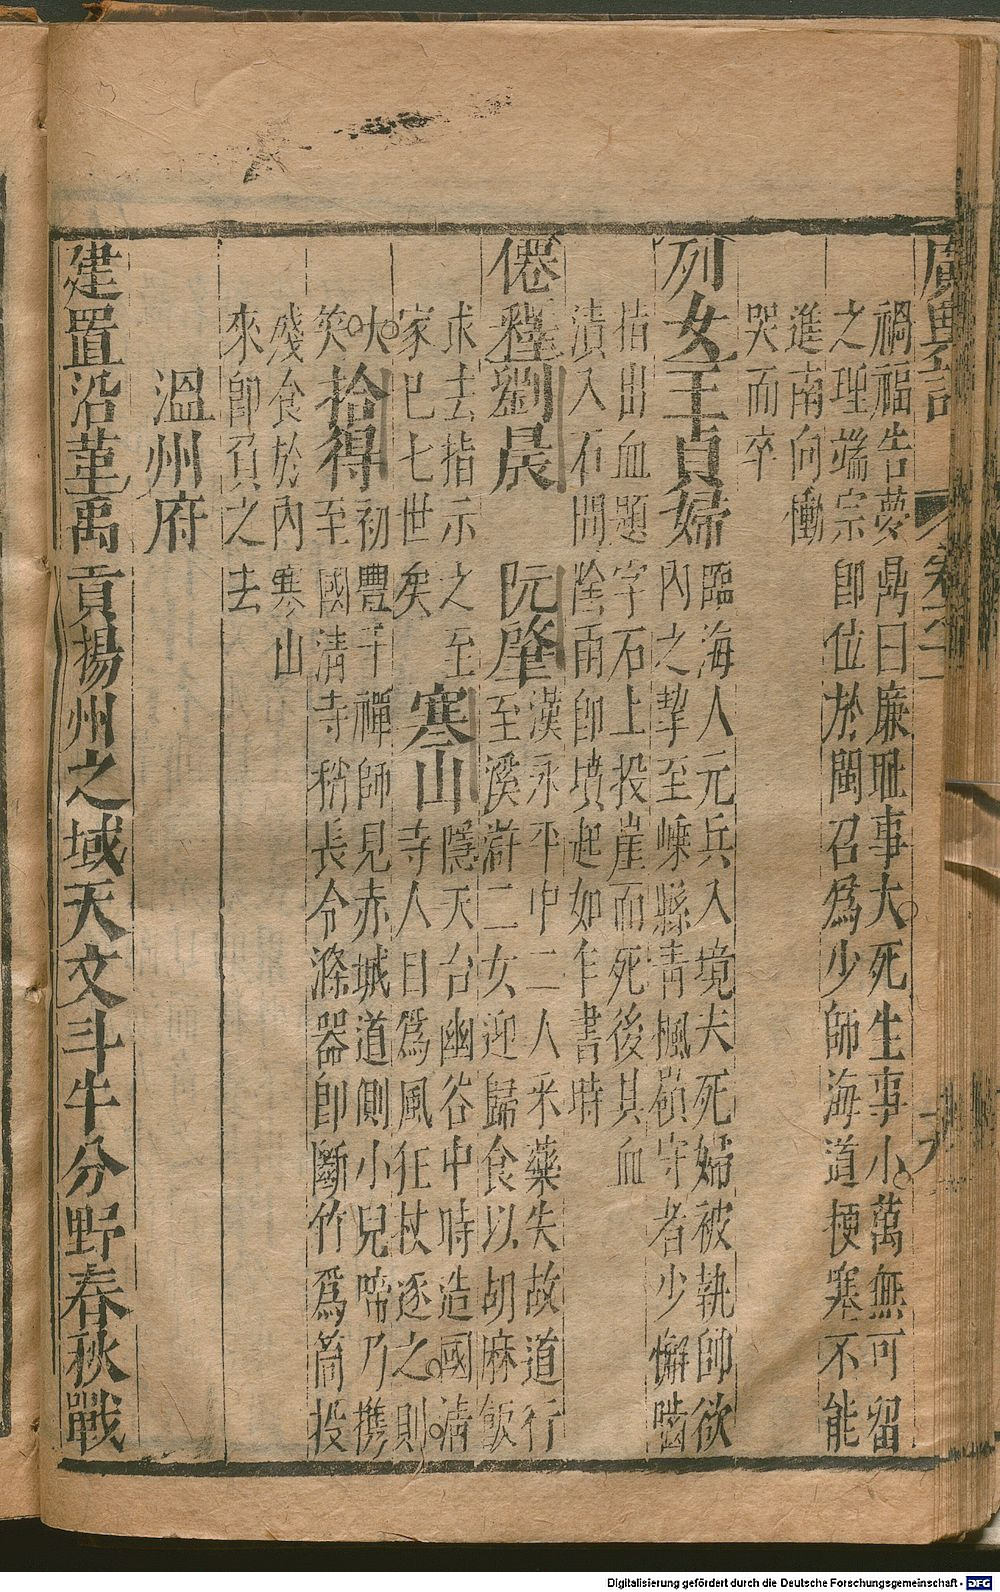 廣輿記
卷十一
禍福告夢鼎曰廉耻事大死生事小萬無可留
之理端宗即位於閩召爲少師海道梗塞不能
進南向慟
哭而卒
列女王貞婦
臨海人元兵入境夫死婦被執帥欲
內之挈至嵊縣青楓嶺守者少懈嚙
指出血題字石上投崖而死後其血
漬入石間陰雨卽墳起如乍書時
僊釋劉晨 阮肇
漢永平中二人采藥失故道行
至溪滸二女迎歸食以胡麻飯
求去指示之至
家已七世矣
寒山
隱天台幽谷中時造國清
寺人目爲風狂杖逐之則
大
笑
拾得
初豐干禪師見赤城道側小兒啼乃携
至國清寺稍長令滌器卽斷竹爲筒投
殘食於內寒山
來卽負之去
溫州府
建置沿革禹貢揚州之域天文斗牛分野春秋戰
Digitalisierung gefördert durch die Deutsche Forschungsgemeinschaft - DFG